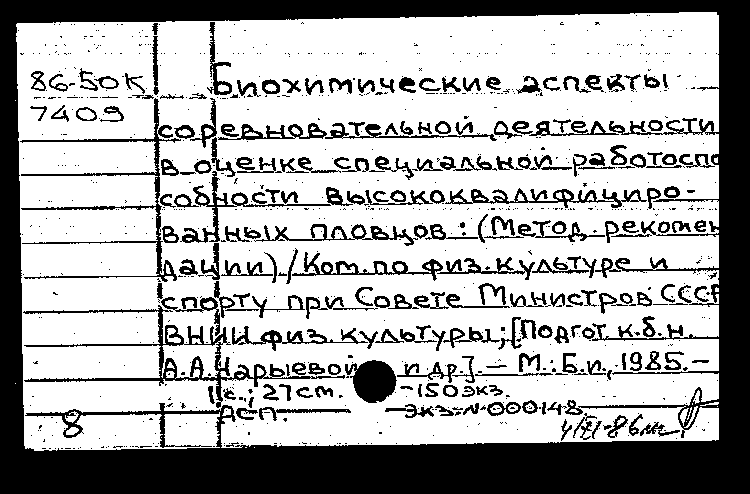 86-50К Биохимические аспекты
7409
соревновательной деятельности
в оценке специальной работоспо
собности высококвалифициро-
ванных пловцов: (Метод. рекомен
дации)/Ком. по физ. культуре и
спорту при Совете Министров СССР
ВНИИ физ. культуры; [Подгот. к.б.н.
А.А. Нарыевой и др.]. — М.: Б.и., 1985. —
с.; 27 см. -150 экз.
ДСП. Экз. N-000148
8